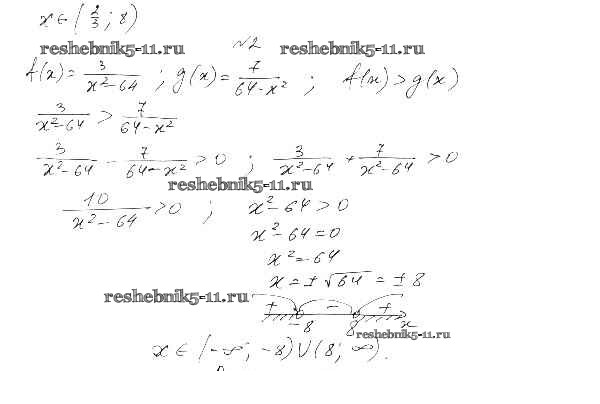 x ∈ (2/3; 8)
reshebnik5-11.ru №2 reshebnik5-11.ru
f(x) = 3/(x²-64) ; g(x) = 7/(64-x²) ; f(x) > g(x)
3/(x²-64) > 7/(64-x²)
3/(x²-64) - 7/(64-x²) > 0 ; 3/(x²-64) + 7/(x²-64) > 0
reshebnik5-11.ru
10/(x²-64) > 0 ; x²-64 > 0
x²-64 = 0
x² = 64
x = ± √64 = ± 8
reshebnik5-11.ru
+ - +
-8 8 x
reshebnik5-11.ru
x ∈ (-∞; -8) ∪ (8; ∞).